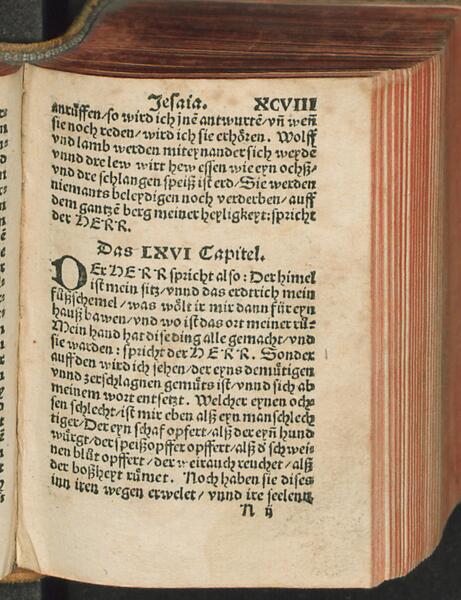 Jesaia. XCVIII
anrüffen/so wird ich jnē antwurtē/vn̄ weñ
sie noch reden/wird ich sie erhören. Wolff
vnd lamb werden miteynander sich weyde
vnnd dre lew wirt hew essen wie eyn ochß/
vnd dre schlangen speiß ist erd/Sie werden
niemants beleydigen noch verderben/auff
dem gantzē berg meiner heyligkeyt:spricht
der HERR.
Das LXVI Capitel.
DEr HERR spricht also: Der himel
ist mein sitz/vnnd das erdtrich mein
füßschemel/was wölt ir mir dann für eyn
hauß bawen/vnd wo ist das ort meiner rů-
Mein hand hat dise ding alle gemacht/vnd
sie warden: spricht der HERR. Sonder
auff den wird ich sehen/der eyns demütigen
vnnd zerschlagnen gemüts ist/vnnd sich ab
meinem wort entsetzt. Welcher eynen och-
sen schlecht/ist mir eben alß eyn manschlech
tiger/Der eyn schaf opfert/alß der eyñ hund
würgt/der speißopffer opffert/alß ď schwei-
nen blůt opffert/der weirauch reuchet/alß
der boßheyt růmet. Noch haben sie dises
inn iren wegen erwelet/vnnd ire seelen
N ij